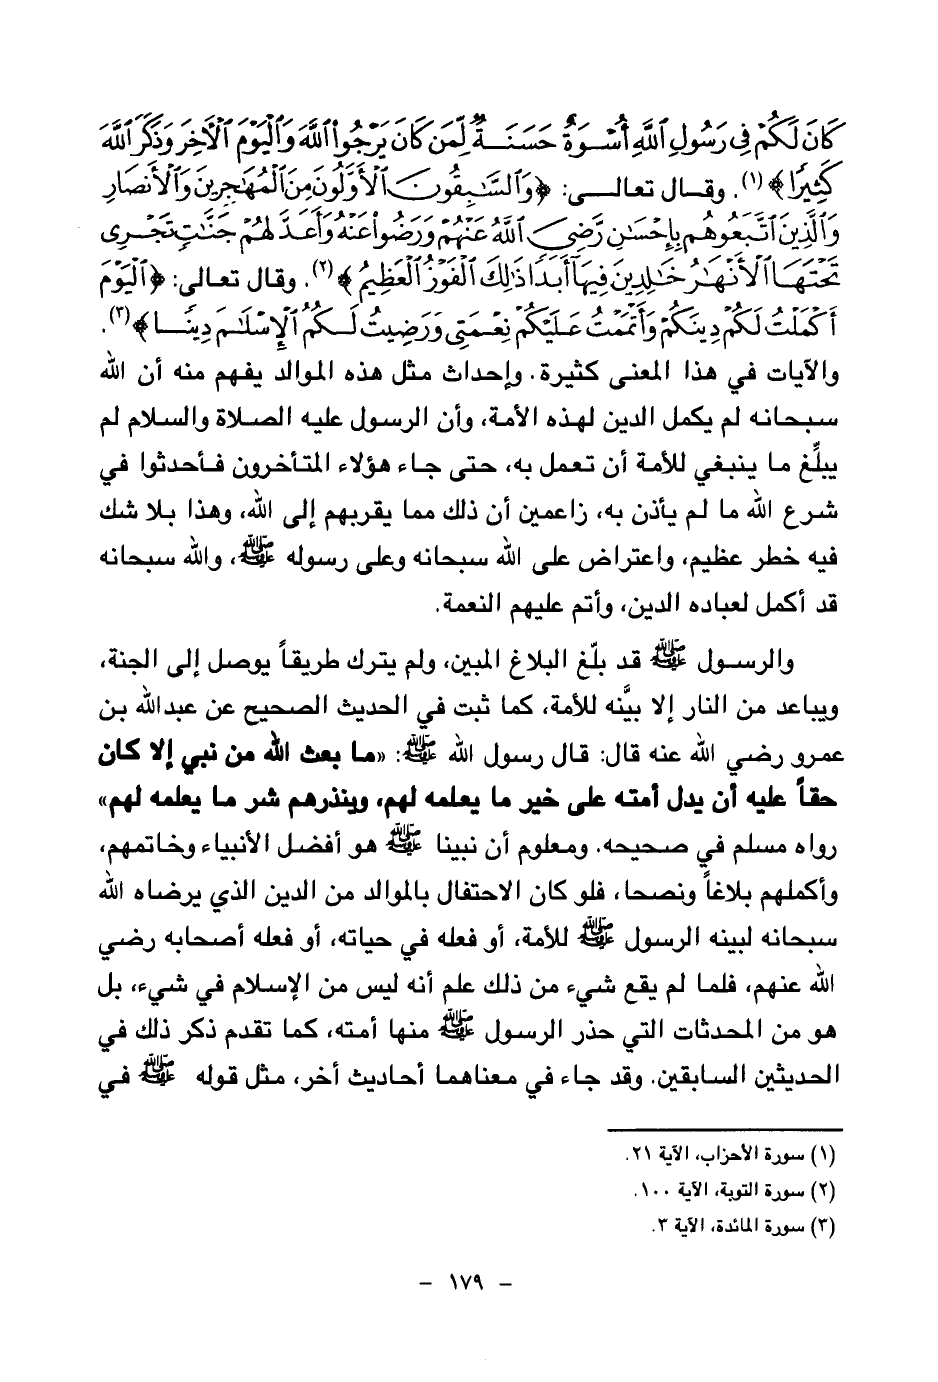 كَانَ لَكُمْ فِى رَسُولِ ٱللَّهِ أُسْوَةٌ حَسَنَةٌ لِّمَن كَانَ يَرْجُوا۟ ٱللَّهَ وَٱلْيَوْمَ ٱلْأَخِرَ وَذَكَرَ ٱللَّهَ
كَثِيرًا﴾(١). وقال تعالى: ﴿وَٱلسَّٰبِقُونَ ٱلْأَوَّلُونَ مِنَ ٱلْمُهَٰجِرِينَ وَٱلْأَنصَارِ
وَٱلَّذِينَ ٱتَّبَعُوهُم بِإِحْسَٰنٍ رَّضِىَ ٱللَّهُ عَنْهُمْ وَرَضُوا۟ عَنْهُ وَأَعَدَّ لَهُمْ جَنَّٰتٍ تَجْرِى
تَحْتَهَا ٱلْأَنْهَٰرُ خَٰلِدِينَ فِيهَآ أَبَدًا ذَٰلِكَ ٱلْفَوْزُ ٱلْعَظِيمُ﴾(٢). وقال تعالى: ﴿ٱلْيَوْمَ
أَكْمَلْتُ لَكُمْ دِينَكُمْ وَأَتْمَمْتُ عَلَيْكُمْ نِعْمَتِى وَرَضِيتُ لَكُمُ ٱلْإِسْلَٰمَ دِينًا﴾(٣).
والآيات في هذا المعنى كثيرة. وإحداث مثل هذه الموالد يفهم منه أن الله
سبحانه لم يكمل الدين لهذه الأمة، وأن الرسول عليه الصلاة والسلام لم
يبلِّغ ما ينبغي للأمة أن تعمل به، حتى جاء هؤلاء المتأخرون فأحدثوا في
شرع الله ما لم يأذن به، زاعمين أن ذلك مما يقربهم إلى الله، وهذا بلا شك
فيه خطر عظيم، واعتراض على الله سبحانه وعلى رسوله ﷺ، والله سبحانه
قد أكمل لعباده الدين، وأتم عليهم النعمة.
والرسول ﷺ قد بلّغ البلاغ المبين، ولم يترك طريقاً يوصل إلى الجنة،
ويباعد من النار إلا بيَّنه للأمة، كما ثبت في الحديث الصحيح عن عبدالله بن
عمرو رضي الله عنه قال: قال رسول الله ﷺ: «ما بعث الله من نبي إلا كان
حقاً عليه أن يدل أمته على خير ما يعلمه لهم، وينذرهم شر ما يعلمه لهم»
رواه مسلم في صحيحه. ومعلوم أن نبينا ﷺ هو أفضل الأنبياء وخاتمهم،
وأكملهم بلاغاً ونصحا، فلو كان الاحتفال بالموالد من الدين الذي يرضاه الله
سبحانه لبينه الرسول ﷺ للأمة، أو فعله في حياته، أو فعله أصحابه رضي
الله عنهم، فلما لم يقع شيء من ذلك علم أنه ليس من الإسلام في شيء، بل
هو من المحدثات التي حذر الرسول ﷺ منها أمته، كما تقدم ذكر ذلك في
الحديثين السابقين. وقد جاء في معناهما أحاديث أخر، مثل قوله ﷺ في
(١) سورة الأحزاب، الآية ٢١.
(٢) سورة التوبة، الآية ١٠٠.
(٣) سورة المائدة، الآية ٣.
– ١٧٩ –